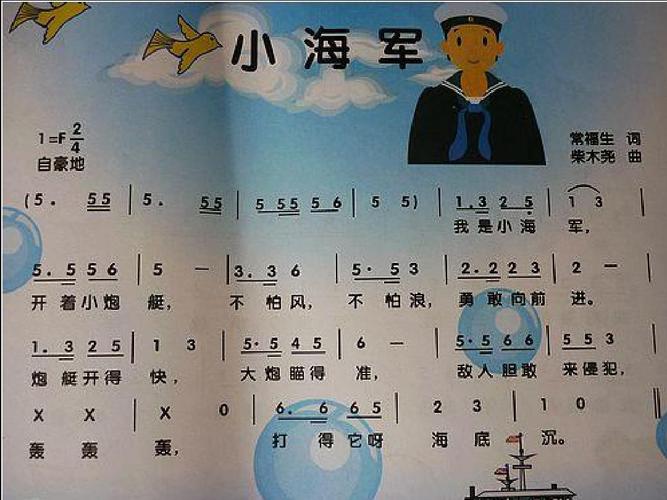 小海军
1=F 2/4
自豪地
常福生 词
柴木尧 曲
(5. 55 | 5. 55 | 5 55 55 56 | 5 5) | 1.3 2 5 | 1 3 |
我是小海 军,
5.5 5 6 | 5 — | 3.3 6 | 5·5 3 | 2.2 2 3 | 2 — |
开着小炮 艇, 不怕风, 不怕浪, 勇敢向前 进。
1.3 2 5 | 1 3 | 5·5 4 5 | 6 — | 5·5 6 6 | 5 5 3 |
炮艇开得 快, 大炮瞄得 准, 敌人胆敢 来侵犯,
X X | X 0 | 6.6 6 5 | 2 3 | 1 0 ‖
轰 轰 轰, 打得它呀 海底 沉。